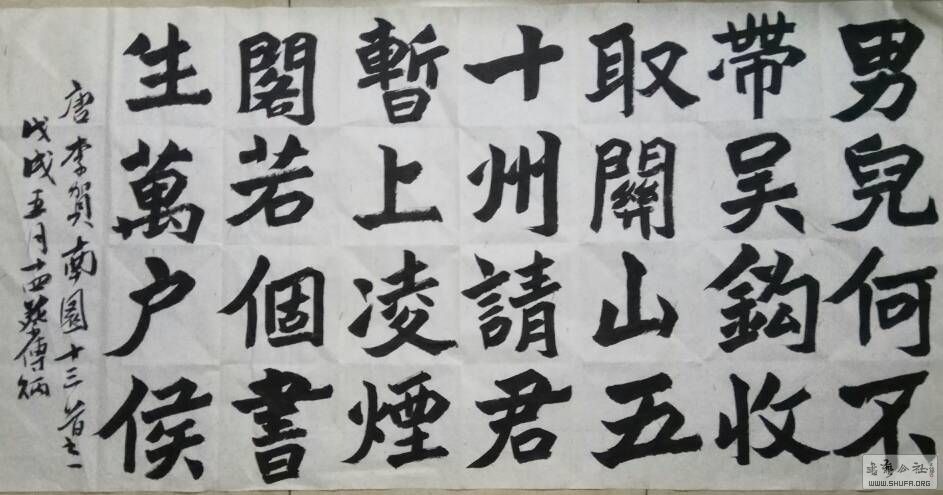 男兒何不
帶吴鈎收
取關山五
十州請君
暫上凌煙
閣若個書
生萬户侯
唐李賀南園十三首之一
戊戌五月十四
WWW.SHUFA.ORG